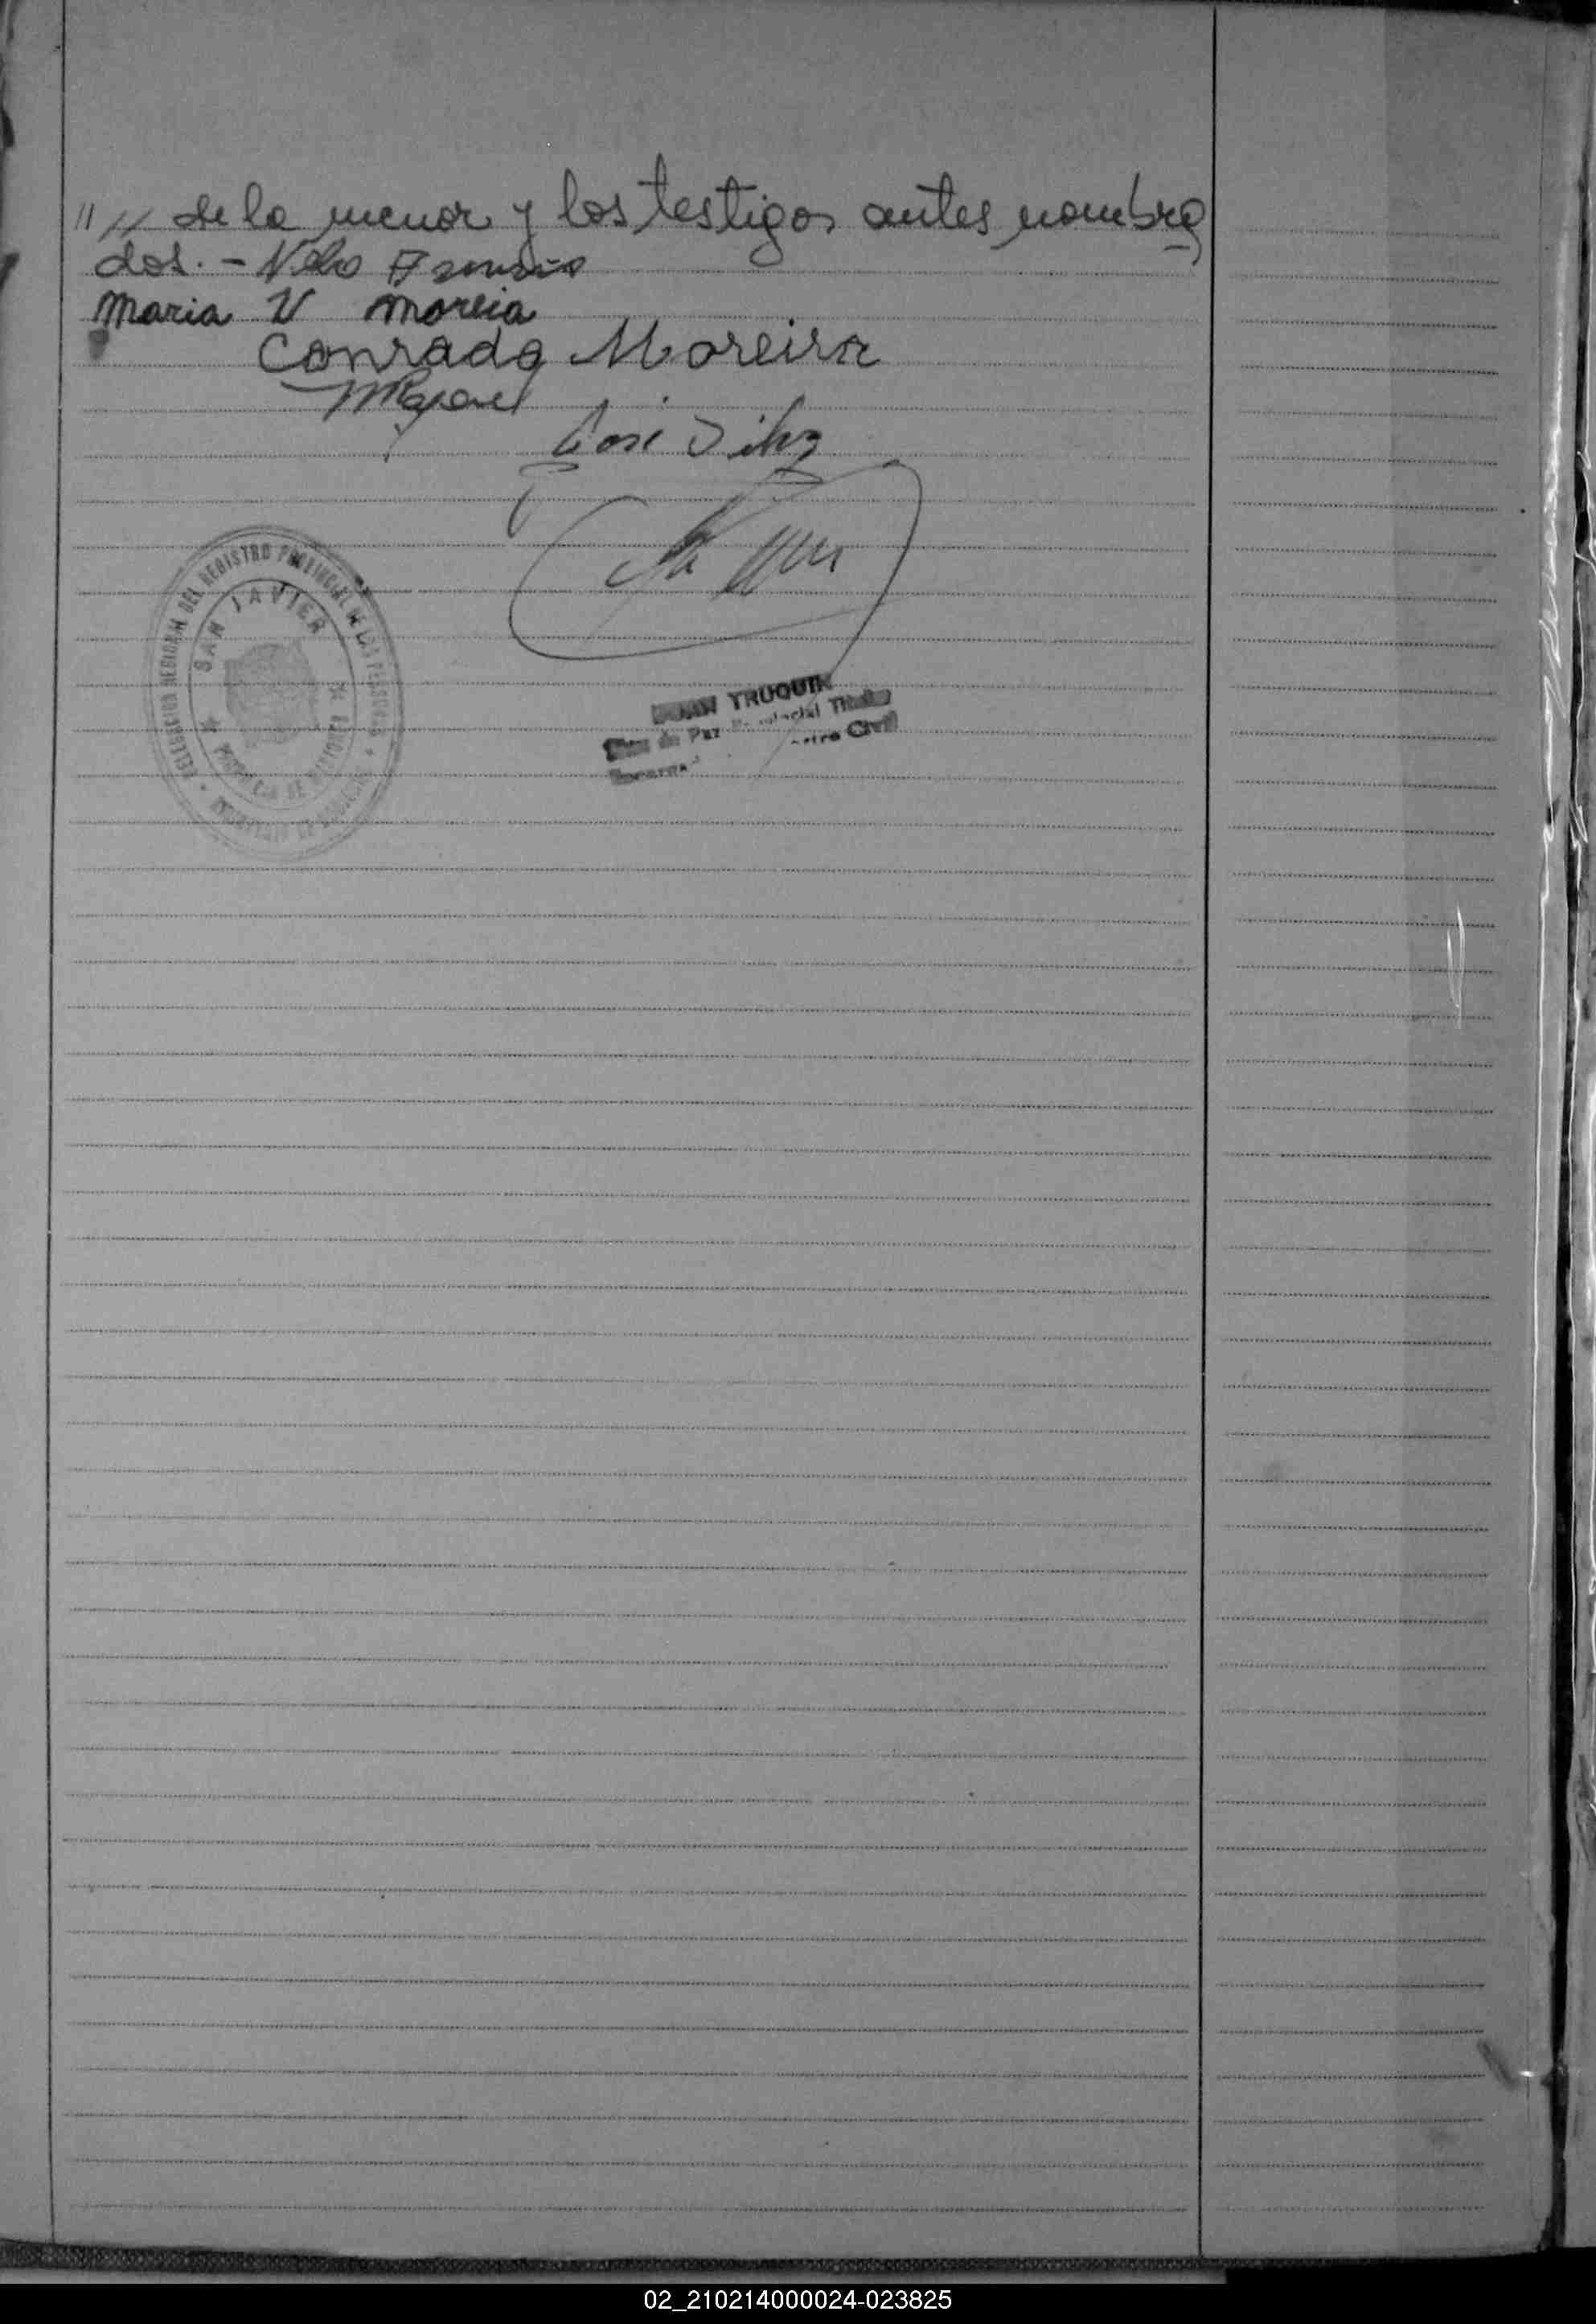 " // de la menor y los testigos antes nombra
dos. -
Maria V Moreia
Conrado Moreira
José Silva
DELEGACION REGIONAL DEL REGISTRO PROVINCIAL DE LAS PERSONAS
SAN JAVIER
PROVINCIA DE MISIONES
JUAN TRUQUIN
de Paz Provincial Titular
Civil
02_210214000024-023825